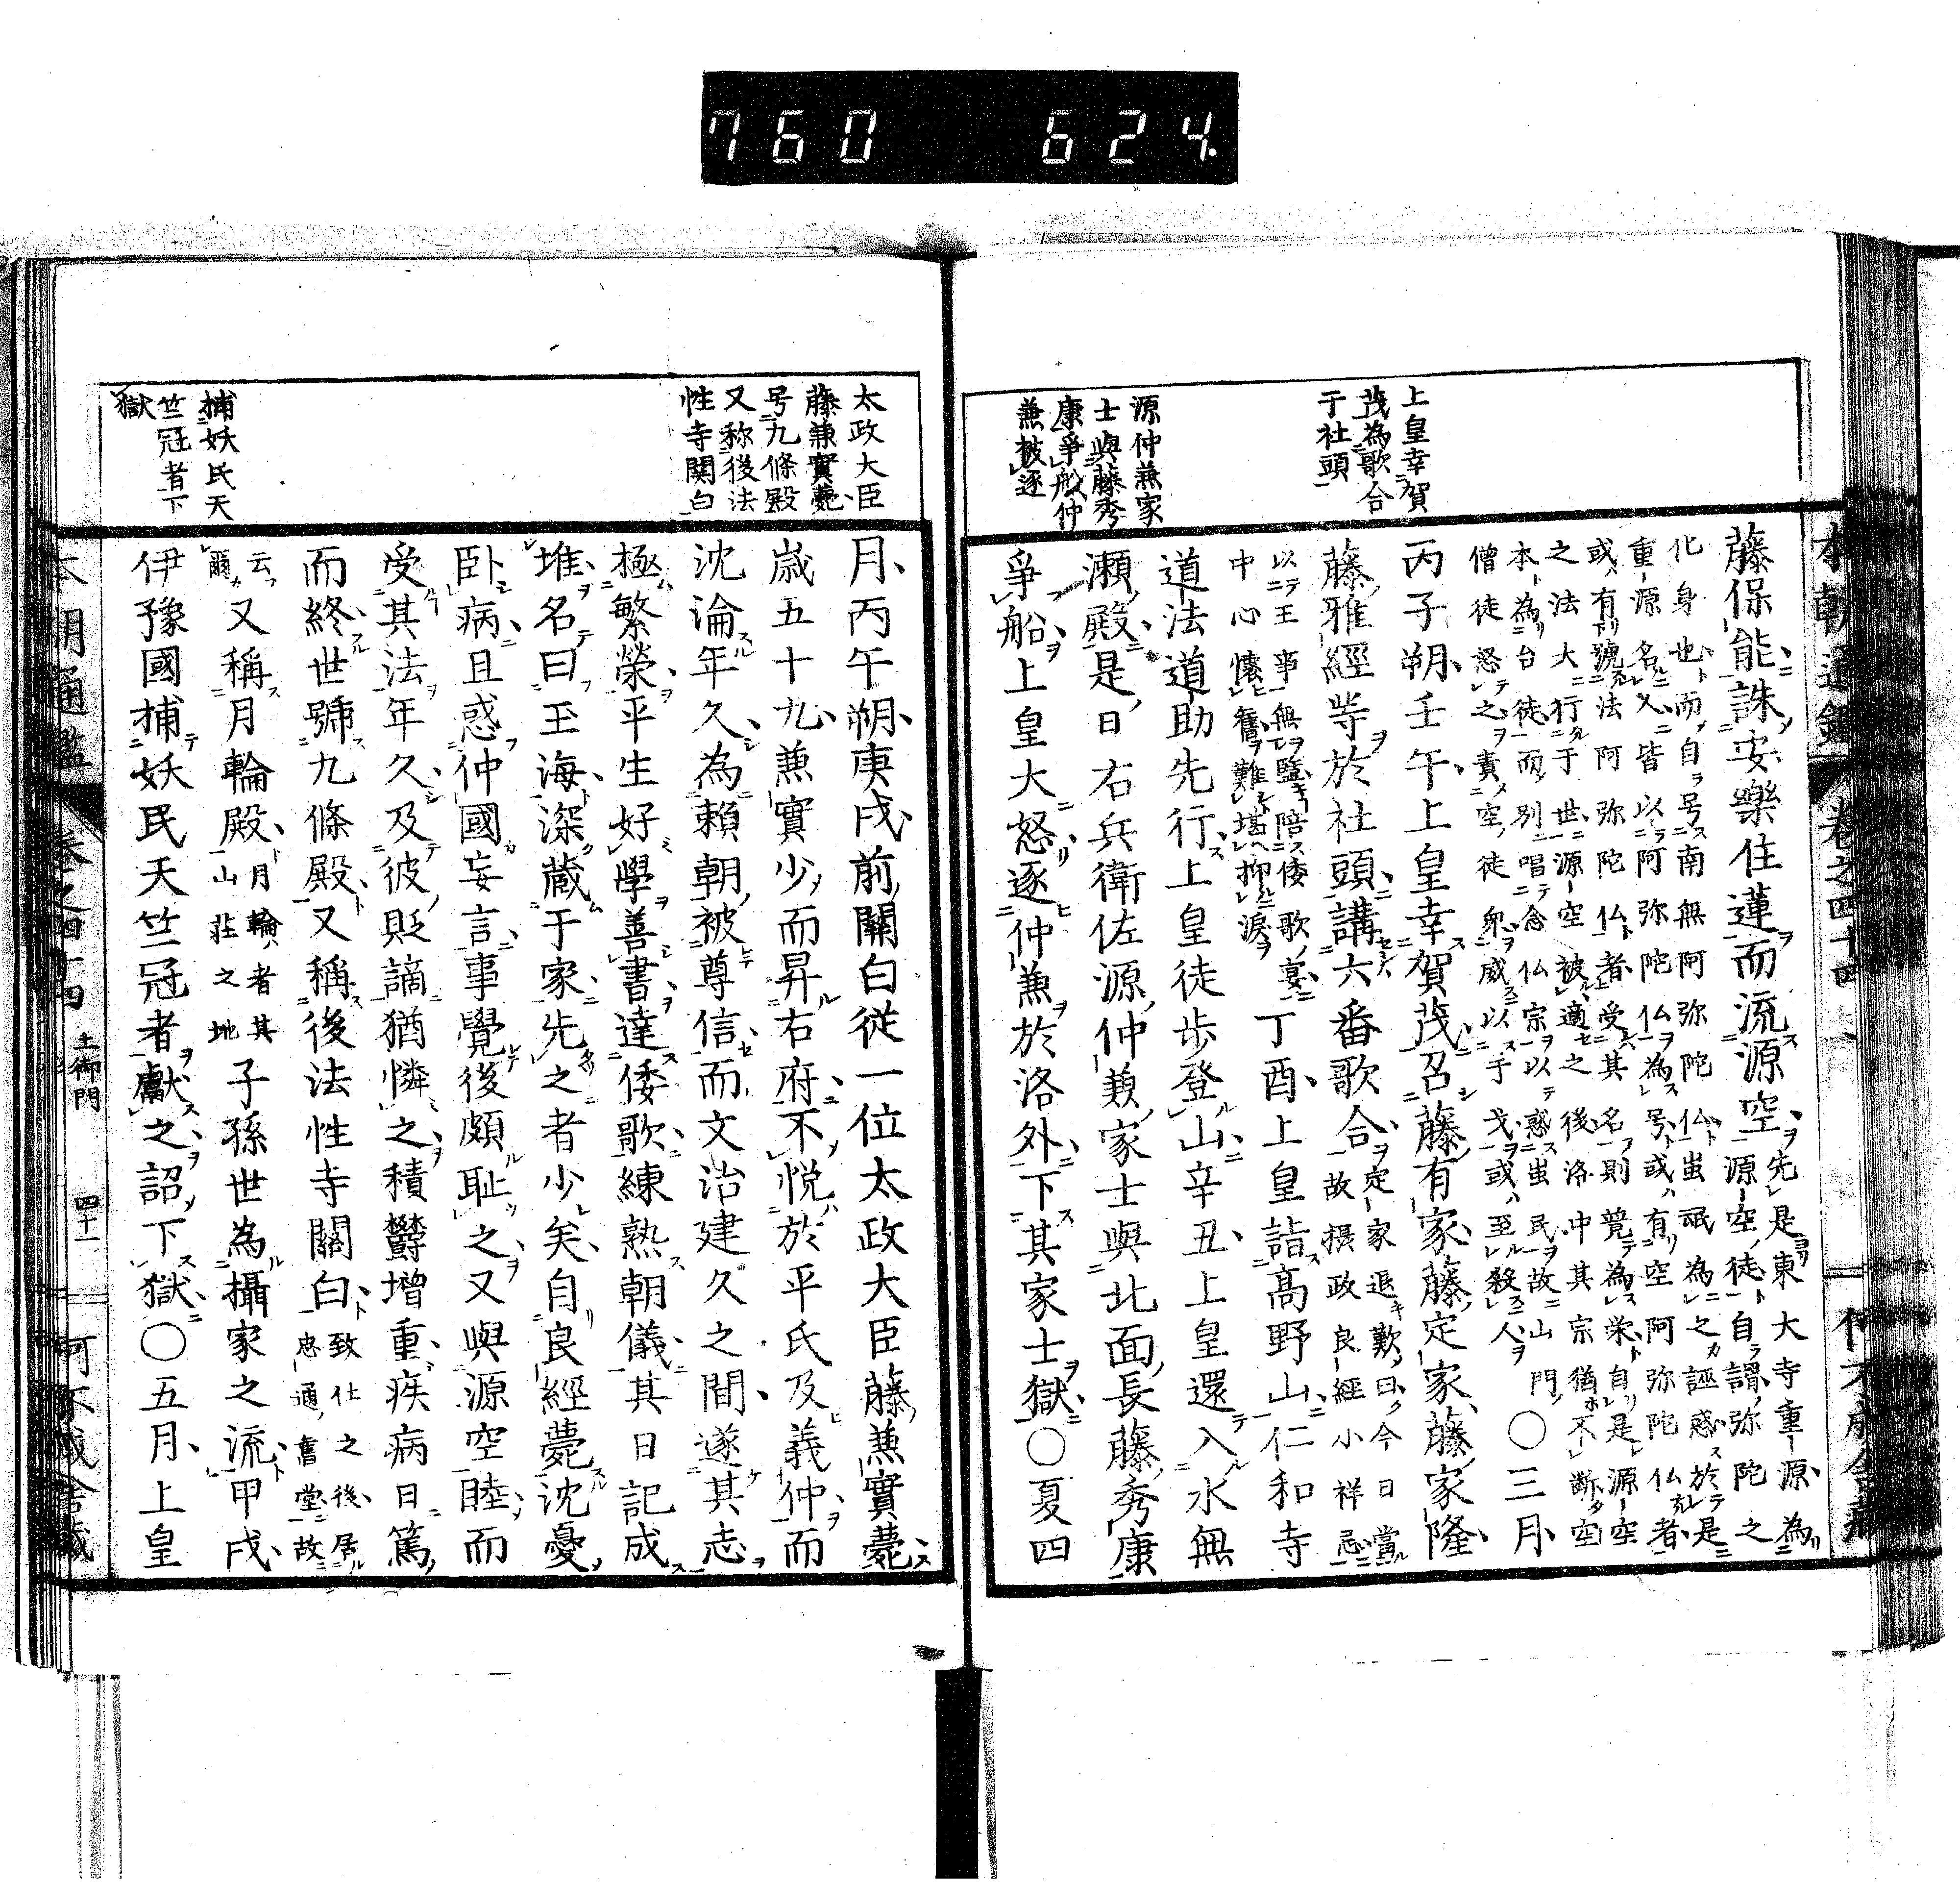 760 624.
上皇幸賀
茂為歌合
于社頭
源仲兼家
士與藤秀
康爭船仲
兼被逐
本朝通鑑 卷之四十四
藤保能誅安樂住蓮而流源空先是東大寺重源為
源空徒自謂弥陀之
化身也而自号南無阿弥陀仏蚩氓為之誣惑於是
重源名又皆以阿弥陀仏為号或有空阿弥陀仏者
或有號法阿弥陀仏者受其名則竟為栄自是源空
之法大行于世源空被適之後洛中其宗猶不断空
本為台徒而別唱念仏宗以惑蚩民故山門
僧徒怒之責空徒衆威以手戈或至殺人〇三月
丙子朔壬午上皇幸賀茂召藤有家藤定家藤家隆
藤雅經等於社頭講六番歌合定家退歎曰今日當
故摂政良經小祥忌
以王事無盬陪倭歌宴
中心懐舊難堪抑淚丁酉上皇詣高野山仁和寺
道法道助先行上皇徒歩登山辛丑上皇還入水無
瀬殿是日右兵衛佐源仲兼家士與北面長藤秀康
爭船上皇大怒逐仲兼於洛外下其家士獄〇夏四
太政大臣
藤兼實薨
号九條殿
又称後法
性寺関白
捕妖民天
竺冠者下
獄
月丙午朔庚戌前關白從一位太政大臣藤兼實薨
歳五十九兼實少而昇右府不悦於平氏及義仲而
沈淪年久為頼朝被尊信而文治建久之間遂其志
極繁榮平生好學善書達倭歌練熟朝儀其日記成
堆名曰玉海深藏于家先之者少矣自良經薨沈憂
臥病且惑仲國妄言事覺後頗恥之又與源空睦而
受其法年久及彼貶謫猶憐之積鬱增重疾病日篤
而終世號九條殿又稱後法性寺關白致仕之後居
忠通舊堂故
云爾又稱月輪殿月輪者其
山荘之地子孫世為攝家之流甲戌
伊豫國捕妖民天竺冠者獻之詔下獄〇五月上皇
本朝通鑑 卷之四十四 土御門 四十一